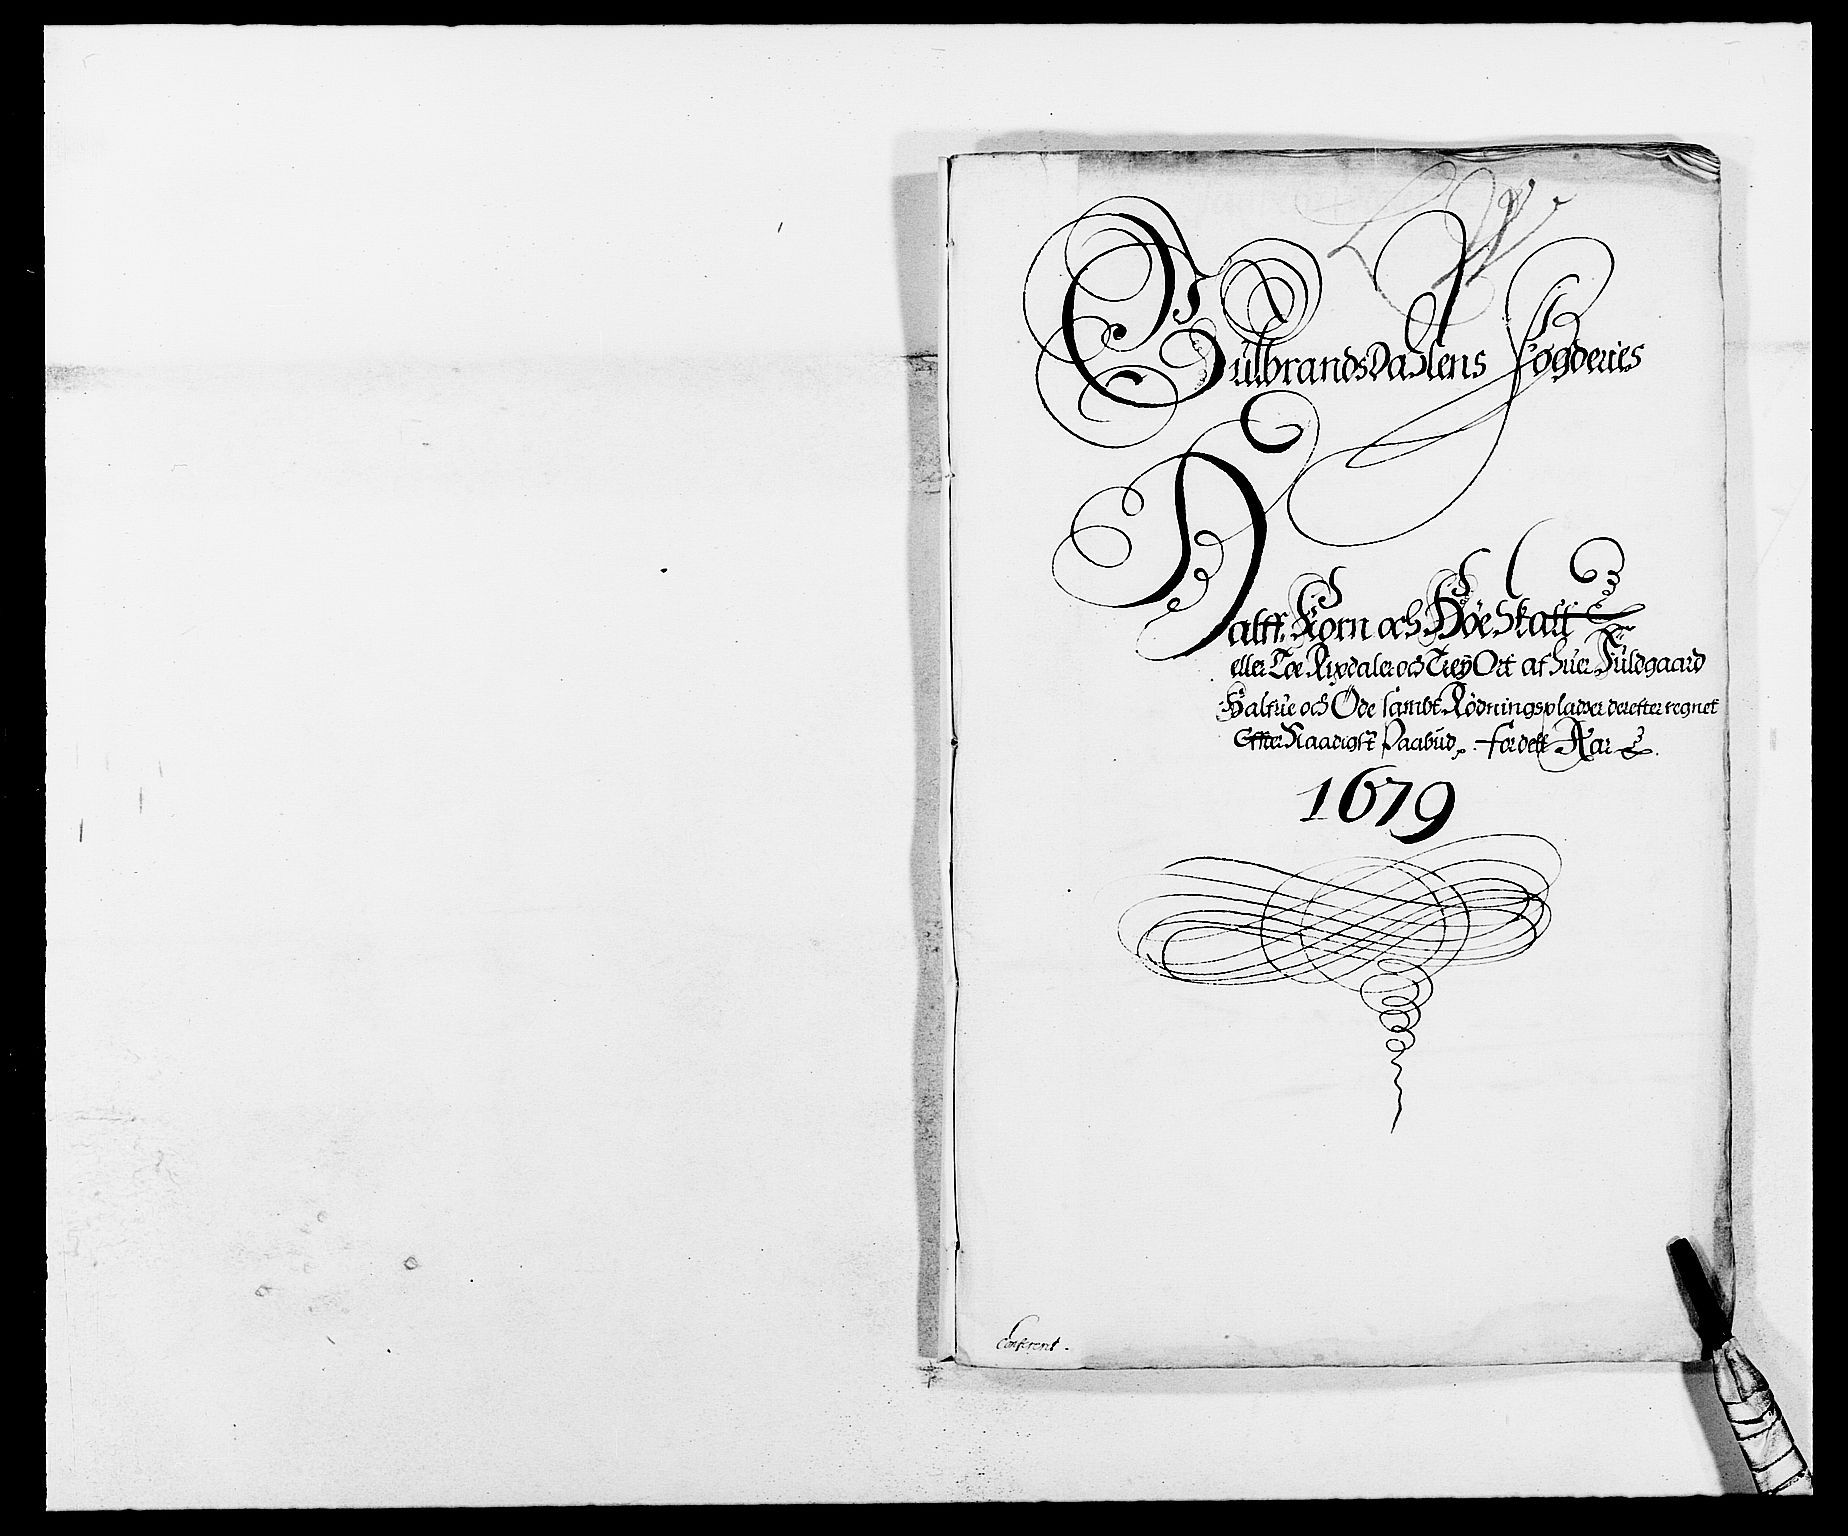 Gulbrandsdahlens Fogderies
Halff Korn och Høe Skatt
eller Toe Rixdaler och Trey Ort af huer Fuldgaard
Halfue och Øde sambt Rødningspladser derefter regnet
Effter Naadigst Paabud for dett Aar
1679
Conferent.